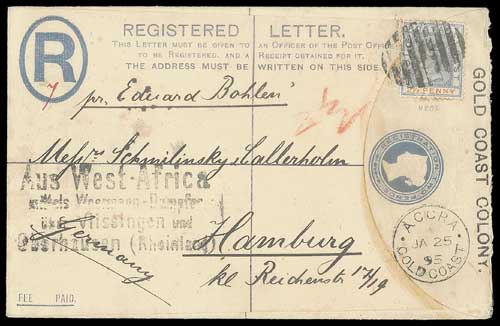 REGISTERED LETTER.
THIS LETTER MUST BE GIVEN TO AN OFFICER OF THE POST OFFICE
TO BE REGISTERED, AND A RECEIPT OBTAINED FOR IT.
THE ADDRESS MUST BE WRITTEN ON THIS SIDE
R
7
PENNY
GOLD COAST COLONY.
pr. Eduard Bohlen
REGISTRATION
TWO PENCE
Messrs Schmilinsky Callerholm
Aus West-Africa
mittels Woermann-Dampfer
über Vlissingen und
Oberhausen (Rheinland)
Germany
Hamburg
kl Reichenstr 17/19
ACCRA
JA 25
95
GOLD COAST
FEE PAID.